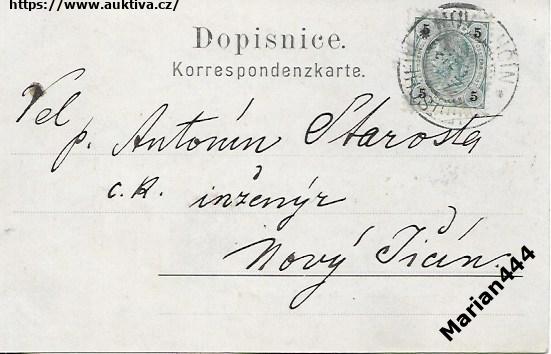 https://www.auktiva.cz/
Dopisnice.
Korrespondenzkarte.
5 5
5 5
Vel
p. Antonín Starosta
c. k. inženýr
Nový Jičín.
Marian444